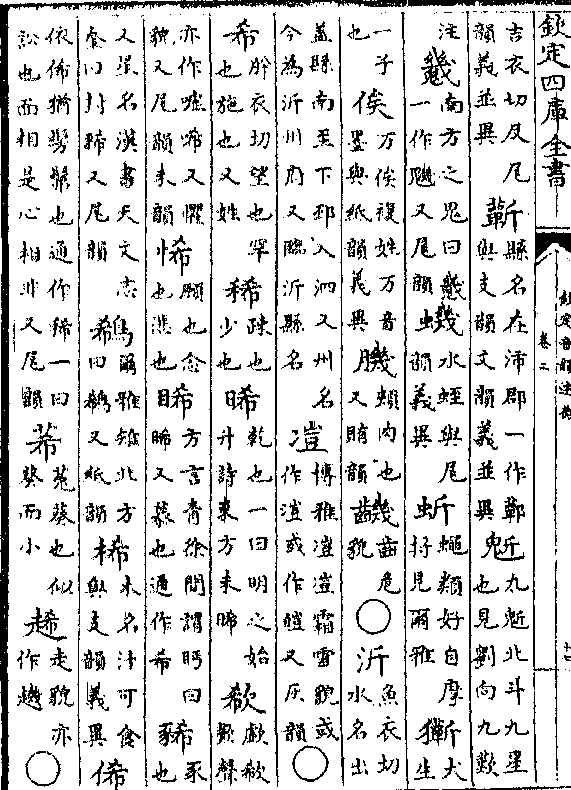 欽定四庫全書
欽定音韻述微
卷二
吉衣切及尾韻義並異 蘄 縣名在沛郡一作鄿與支韻文韻義並異 鬿 九鬿北斗九星也見劉向九歎
注 鬾 南方之鬼曰鬾一作又尾韻 蟣 水蛭與尾韻義異 蚚 蠅類好自摩捋見爾雅 㹞 犬生
一子也 俟 万俟複姓万音墨與紙韻義異 䐅 頰肉也又賄韻 䶓 齒危貌 ○ 沂 魚衣切水名出
蓋縣南至下邳入泗又州名今為沂州府又臨沂縣名 溰 博雅溰溰霜雪貌或作凒或作皚又灰韻 ○
希 香衣切望也罕也施也又姓 稀 疎也少也 晞 乾也一曰明之始升詩東方未晞 欷 歔欷歎聲
亦作唏又懼貌又尾韻未韻 悕 願也念也悲也 睎 方言青徐間謂眄曰睎又慕也通作希 豨 豕也
又星名漢書天文志奎曰封豨又尾韻 鵗 爾雅雉北方曰鵗又紙韻 桸 木名汁可食與支韻義異 俙
依俙猶髣髴也通作稀一曰訟也面相是心相非又尾韻 莃 菟葵也似葵而小 走貌亦作 ○